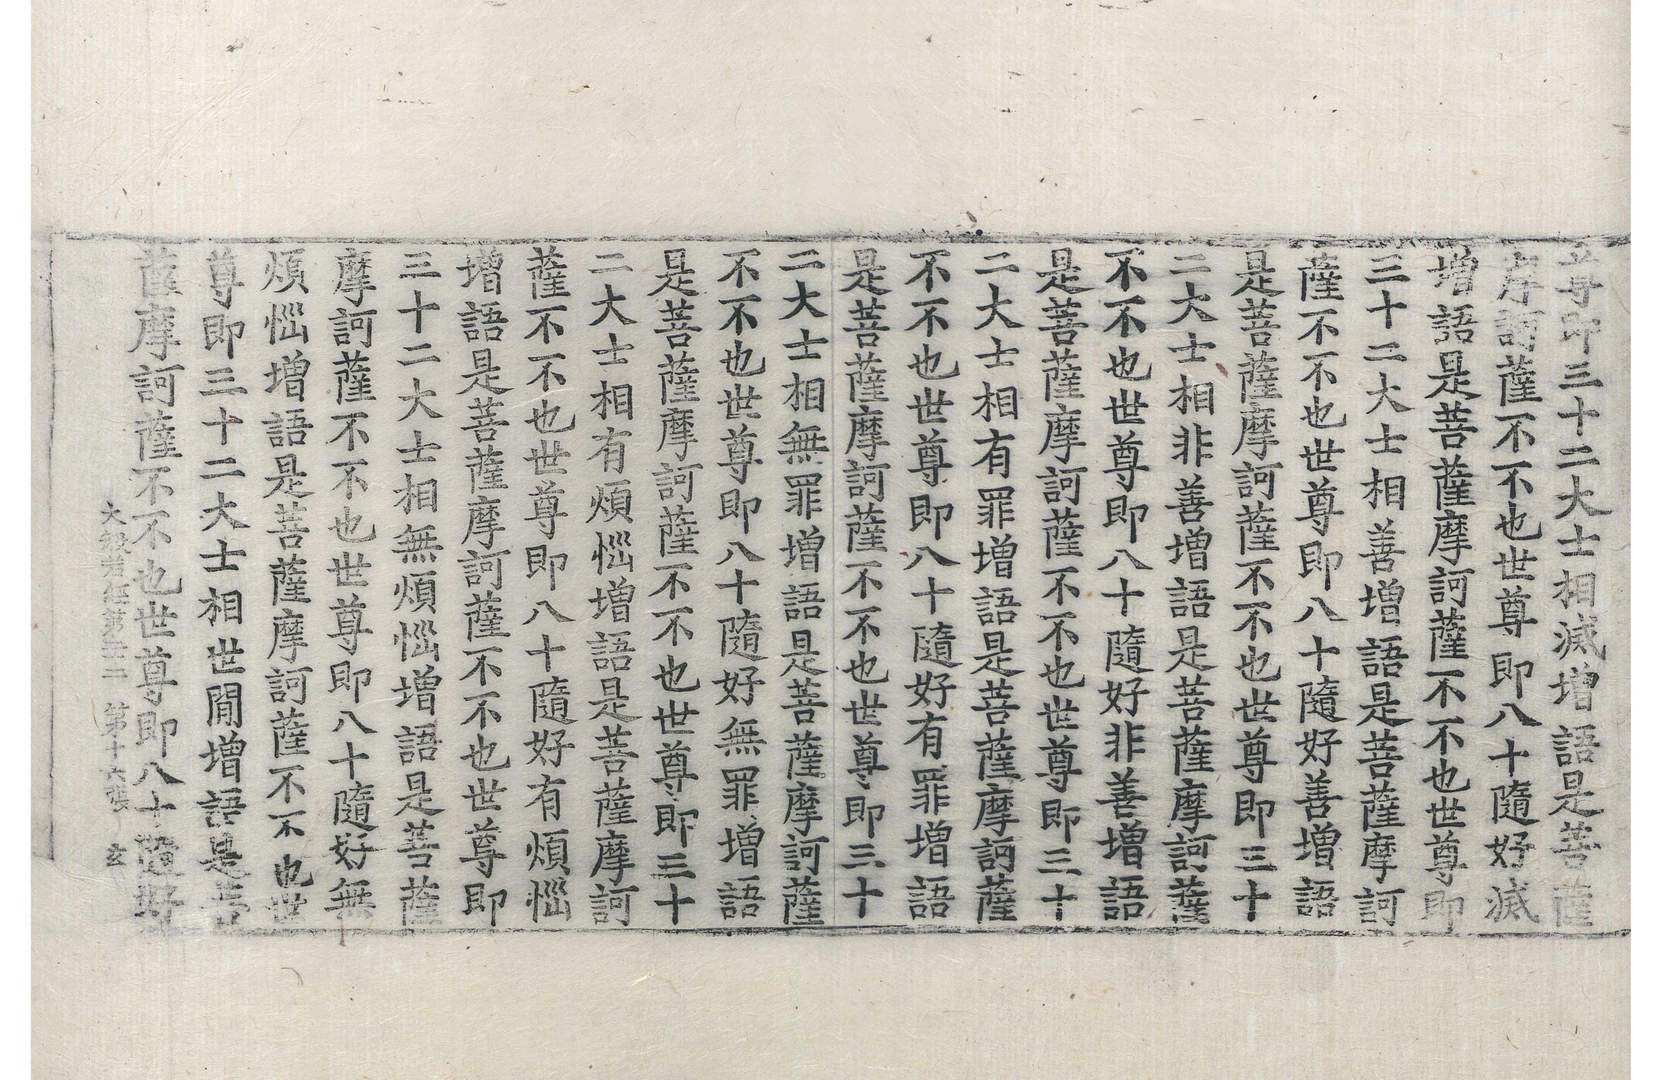 尊即三十二大士相滅增語是菩薩
摩訶薩不不也世尊即八十隨好滅
增語是菩薩摩訶薩不不也世尊即
三十二大士相善增語是菩薩摩訶
薩不不也世尊即八十隨好善增語
是菩薩摩訶薩不不也世尊即三十
二大士相非善增語是菩薩摩訶薩
不不也世尊即八十隨好非善增語
是菩薩摩訶薩不不也世尊即三十
二大士相有罪增語是菩薩摩訶薩
不不也世尊即八十隨好有罪增語
是菩薩摩訶薩不不也世尊即三十
二大士相無罪增語是菩薩摩訶薩
不不也世尊即八十隨好無罪增語
是菩薩摩訶薩不不也世尊即三十
二大士相有煩惱增語是菩薩摩訶
薩不不也世尊即八十隨好有煩惱
增語是菩薩摩訶薩不不也世尊即
三十二大士相無煩惱增語是菩薩
摩訶薩不不也世尊即八十隨好無
煩惱增語是菩薩摩訶薩不不也世
尊即三十二大士相世閒增語是菩
薩摩訶薩不不也世尊即八十隨好
大般若經第 第十六張 玄